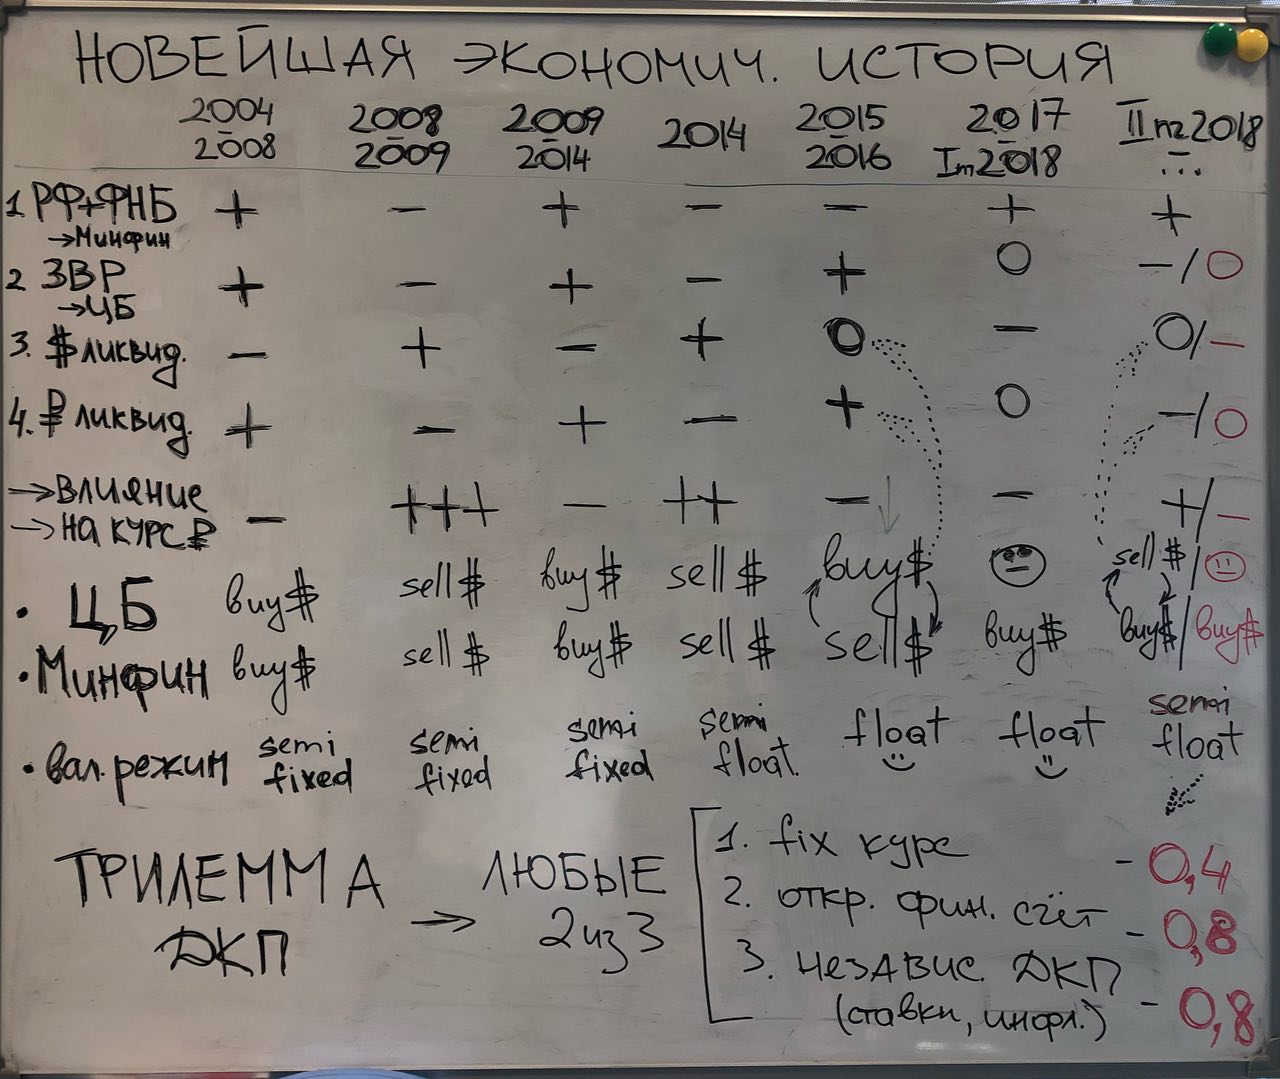 НОВЕЙШАЯ ЭКОНОМИЧ. ИСТОРИЯ
2004 - 2008 2008 - 2009 2009 - 2014 2014 2015 - 2016 2017 - Iпг2018 IIпг2018 - ...
1. РФ+ФНБ + - + - - + +
→Минфин
2 ЗВР + - + - + O -/O
→ЦБ
3. $ ликвид. - + - + O - O/-
4. ₽ ликвид. + - + - + O -/O
→ ВЛИЯНИЕ
→ НА КУРС ₽ - +++ - ++ - ↓ - +/-
• ЦБ buy$ sell$ buy$ sell$ buy$ 😐 sell$/😐
• Минфин buy$ sell$ buy$ sell$ sell$ buy$ buy$/buy$
• вал. режим semi fixed semi fixed semi fixed semi float. float float semi float
ТРИЛЕММА ДКП → ЛЮБЫЕ 2 из 3
1. fix курс - 0,4
2. откр. фин. счёт - 0,8
3. независ. ДКП
(ставки, инфл.) - 0,8